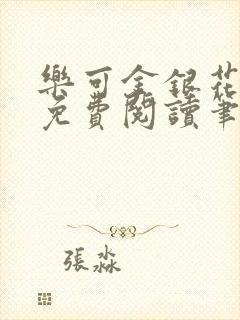 樂可金銀花
免費閱讀筆
張淼